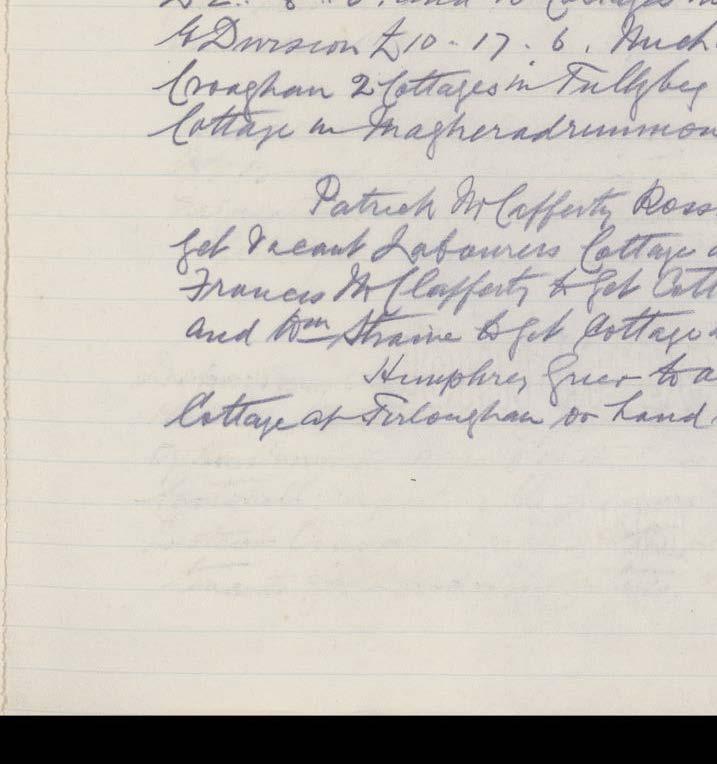 £2. 8. 0. and 10 Cottages in
G Division £10-17.6. Mich
Croaghan 2 Cottages in Tullybeg
Cottage in Magheradrummon
Patrick McCafferty Ross
get Vacant Labourers Cottage a
Francis McClafferty to get Cott
and Wm Straine to get Cottage
Humphrey Grier to a
Cottage at Tirloughan or hand